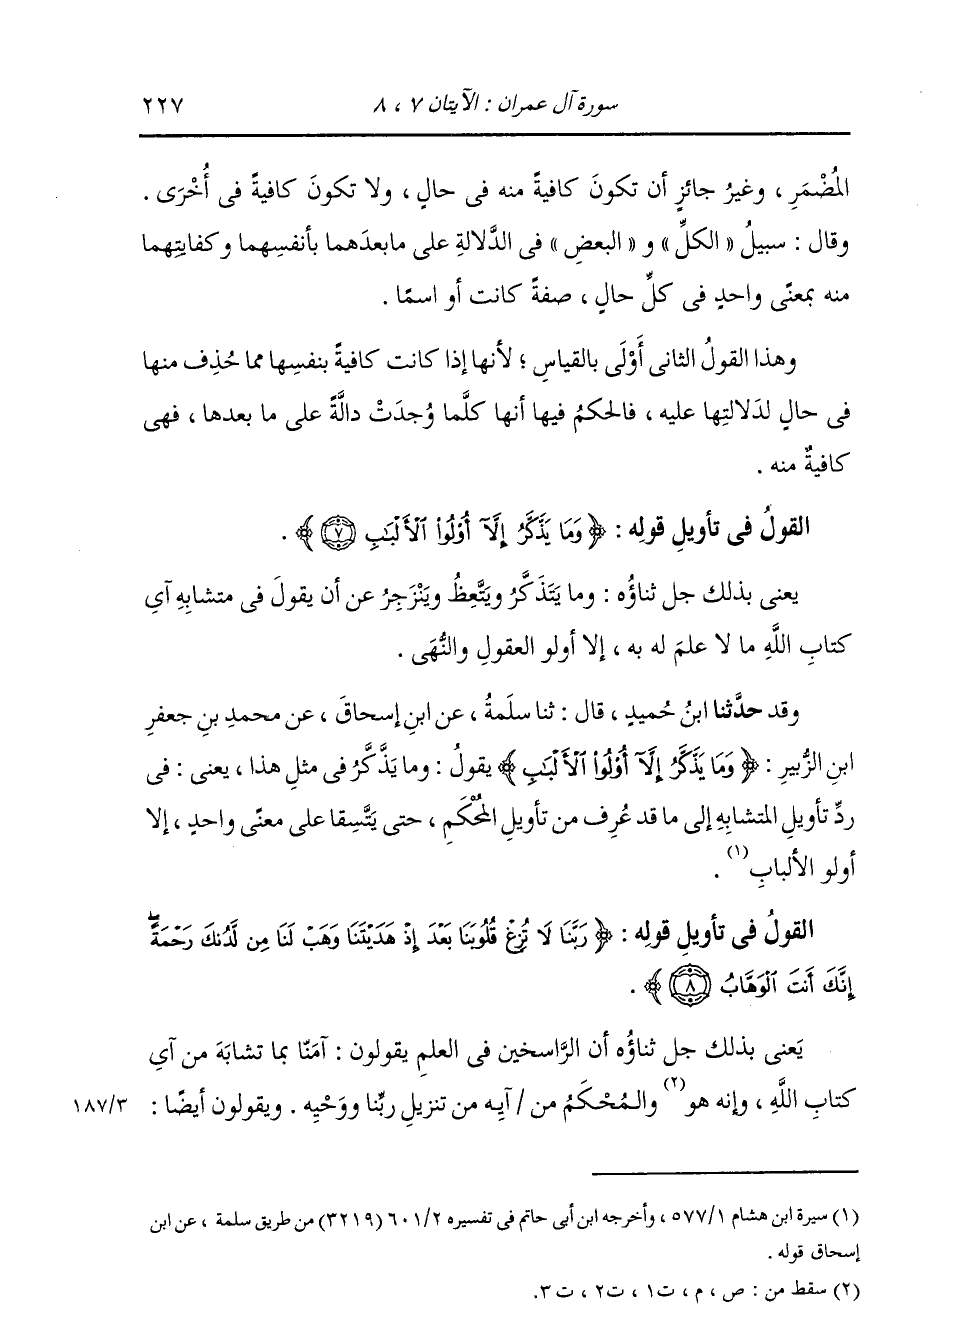 سورة آل عمران : الآيتان ٧ ، ٨ ٢٢٧
المُضْمَرِ ، وغيرُ جائزٍ أن تكونَ كافيةً منه فى حال ، ولا تكونَ كافيةً فى أُخْرَى .
وقال : سبيلُ « الكلِّ » و « البعضِ » فى الدَّلالةِ على مابعدَهما بأنفسِهما وكفايتِهما
منه بمعنًى واحدٍ فى كلِّ حال ، صفةً كانت أو اسمًا .
وهذا القولُ الثانى أَوْلَى بالقياسِ ؛ لأنها إذا كانت كافيةً بنفسِها مما حُذِف منها
فى حالٍ لدَلالتِها عليه ، فالحكمُ فيها أنها كلَّما وُجدَتْ دالَّةً على ما بعدها ، فهى
كافيةٌ منه .
القولُ فى تأويلِ قولِه : ﴿ وَمَا يَذَّكَّرُ إِلَّآ أُوْلُوا۟ ٱلْأَلْبَٰبِ ٧ ﴾ .
يعنى بذلك جل ثناؤُه : وما يَتَذَكَّرُ ويَتَّعِظُ ويَنْزَجِرُ عن أن يقولَ فى متشابِهِ آي
كتابِ اللَّهِ ما لا علمَ له به ، إلا أولو العقولِ والنُّهَى .
وقد حدَّثنا ابنُ حُميدٍ ، قال : ثنا سلَمةُ ، عن ابنِ إسحاقَ ، عن محمدِ بنِ جعفرِ
ابنِ الزُّبيرِ : ﴿ وَمَا يَذَّكَّرُ إِلَّآ أُوْلُوا۟ ٱلْأَلْبَٰبِ ﴾ يقولُ : وما يَذَّكَّرُ فى مثلِ هذا ، يعنى : فى
ردِّ تأويلِ المتشابِهِ إلى ما قد عُرِف من تأويلِ المُحْكَمِ ، حتى يَتَّسِقا على معنًى واحدٍ ، إلا
أولو الألبابِ (١) .
القولُ فى تأويلِ قولِه : ﴿ رَبَّنَا لَا تُزِغْ قُلُوبَنَا بَعْدَ إِذْ هَدَيْتَنَا وَهَبْ لَنَا مِن لَّدُنكَ رَحْمَةً ۚ
إِنَّكَ أَنتَ ٱلْوَهَّابُ ٨ ﴾ .
يَعنى بذلك جل ثناؤُه أن الرَّاسخين فى العلمِ يقولون : آمَنَّا بما تشابَهَ من آي
كتابِ اللَّهِ ، وإنه هو (٢) والمُحْكَمُ من / آيِه من تنزيلِ ربِّنا ووَحْيِه . ويقولون أيضًا : ١٨٧/٣
(١) سيرة ابن هشام ٥٧٧/١ ، وأخرجه ابن أبى حاتم فى تفسيره ٦٠١/٢ (٣٢١٩) من طريق سلمة ، عن ابن
إسحاق قوله .
(٢) سقط من : ص ، م ، ت١ ، ت٢ ، ت٣.